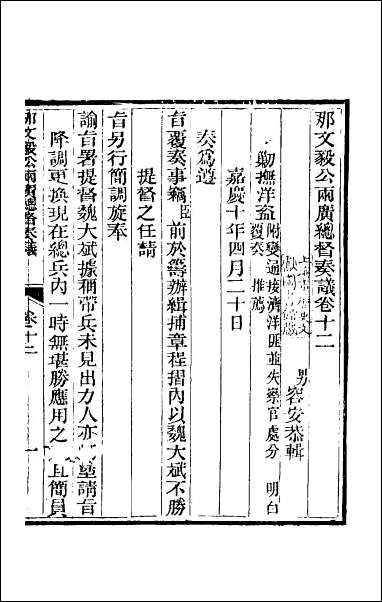 那文毅公兩廣總督奏議卷十二
男 容安恭輯
勦撫洋盜 附變通接濟洋匪並失察官處分 明白覆奏 推薦
嘉慶十年四月二十日
奏爲遵
旨覆奏事竊臣前於籌辦緝捕章程摺內以魏大斌不勝
提督之任請
旨另行簡調旋奉
諭旨署提督魏大斌據稱帶兵未見出力人亦 請旨
降調更換現在總兵內一時無堪勝應用之 且簡員
那文毅公兩廣總督奏議 卷十二 一